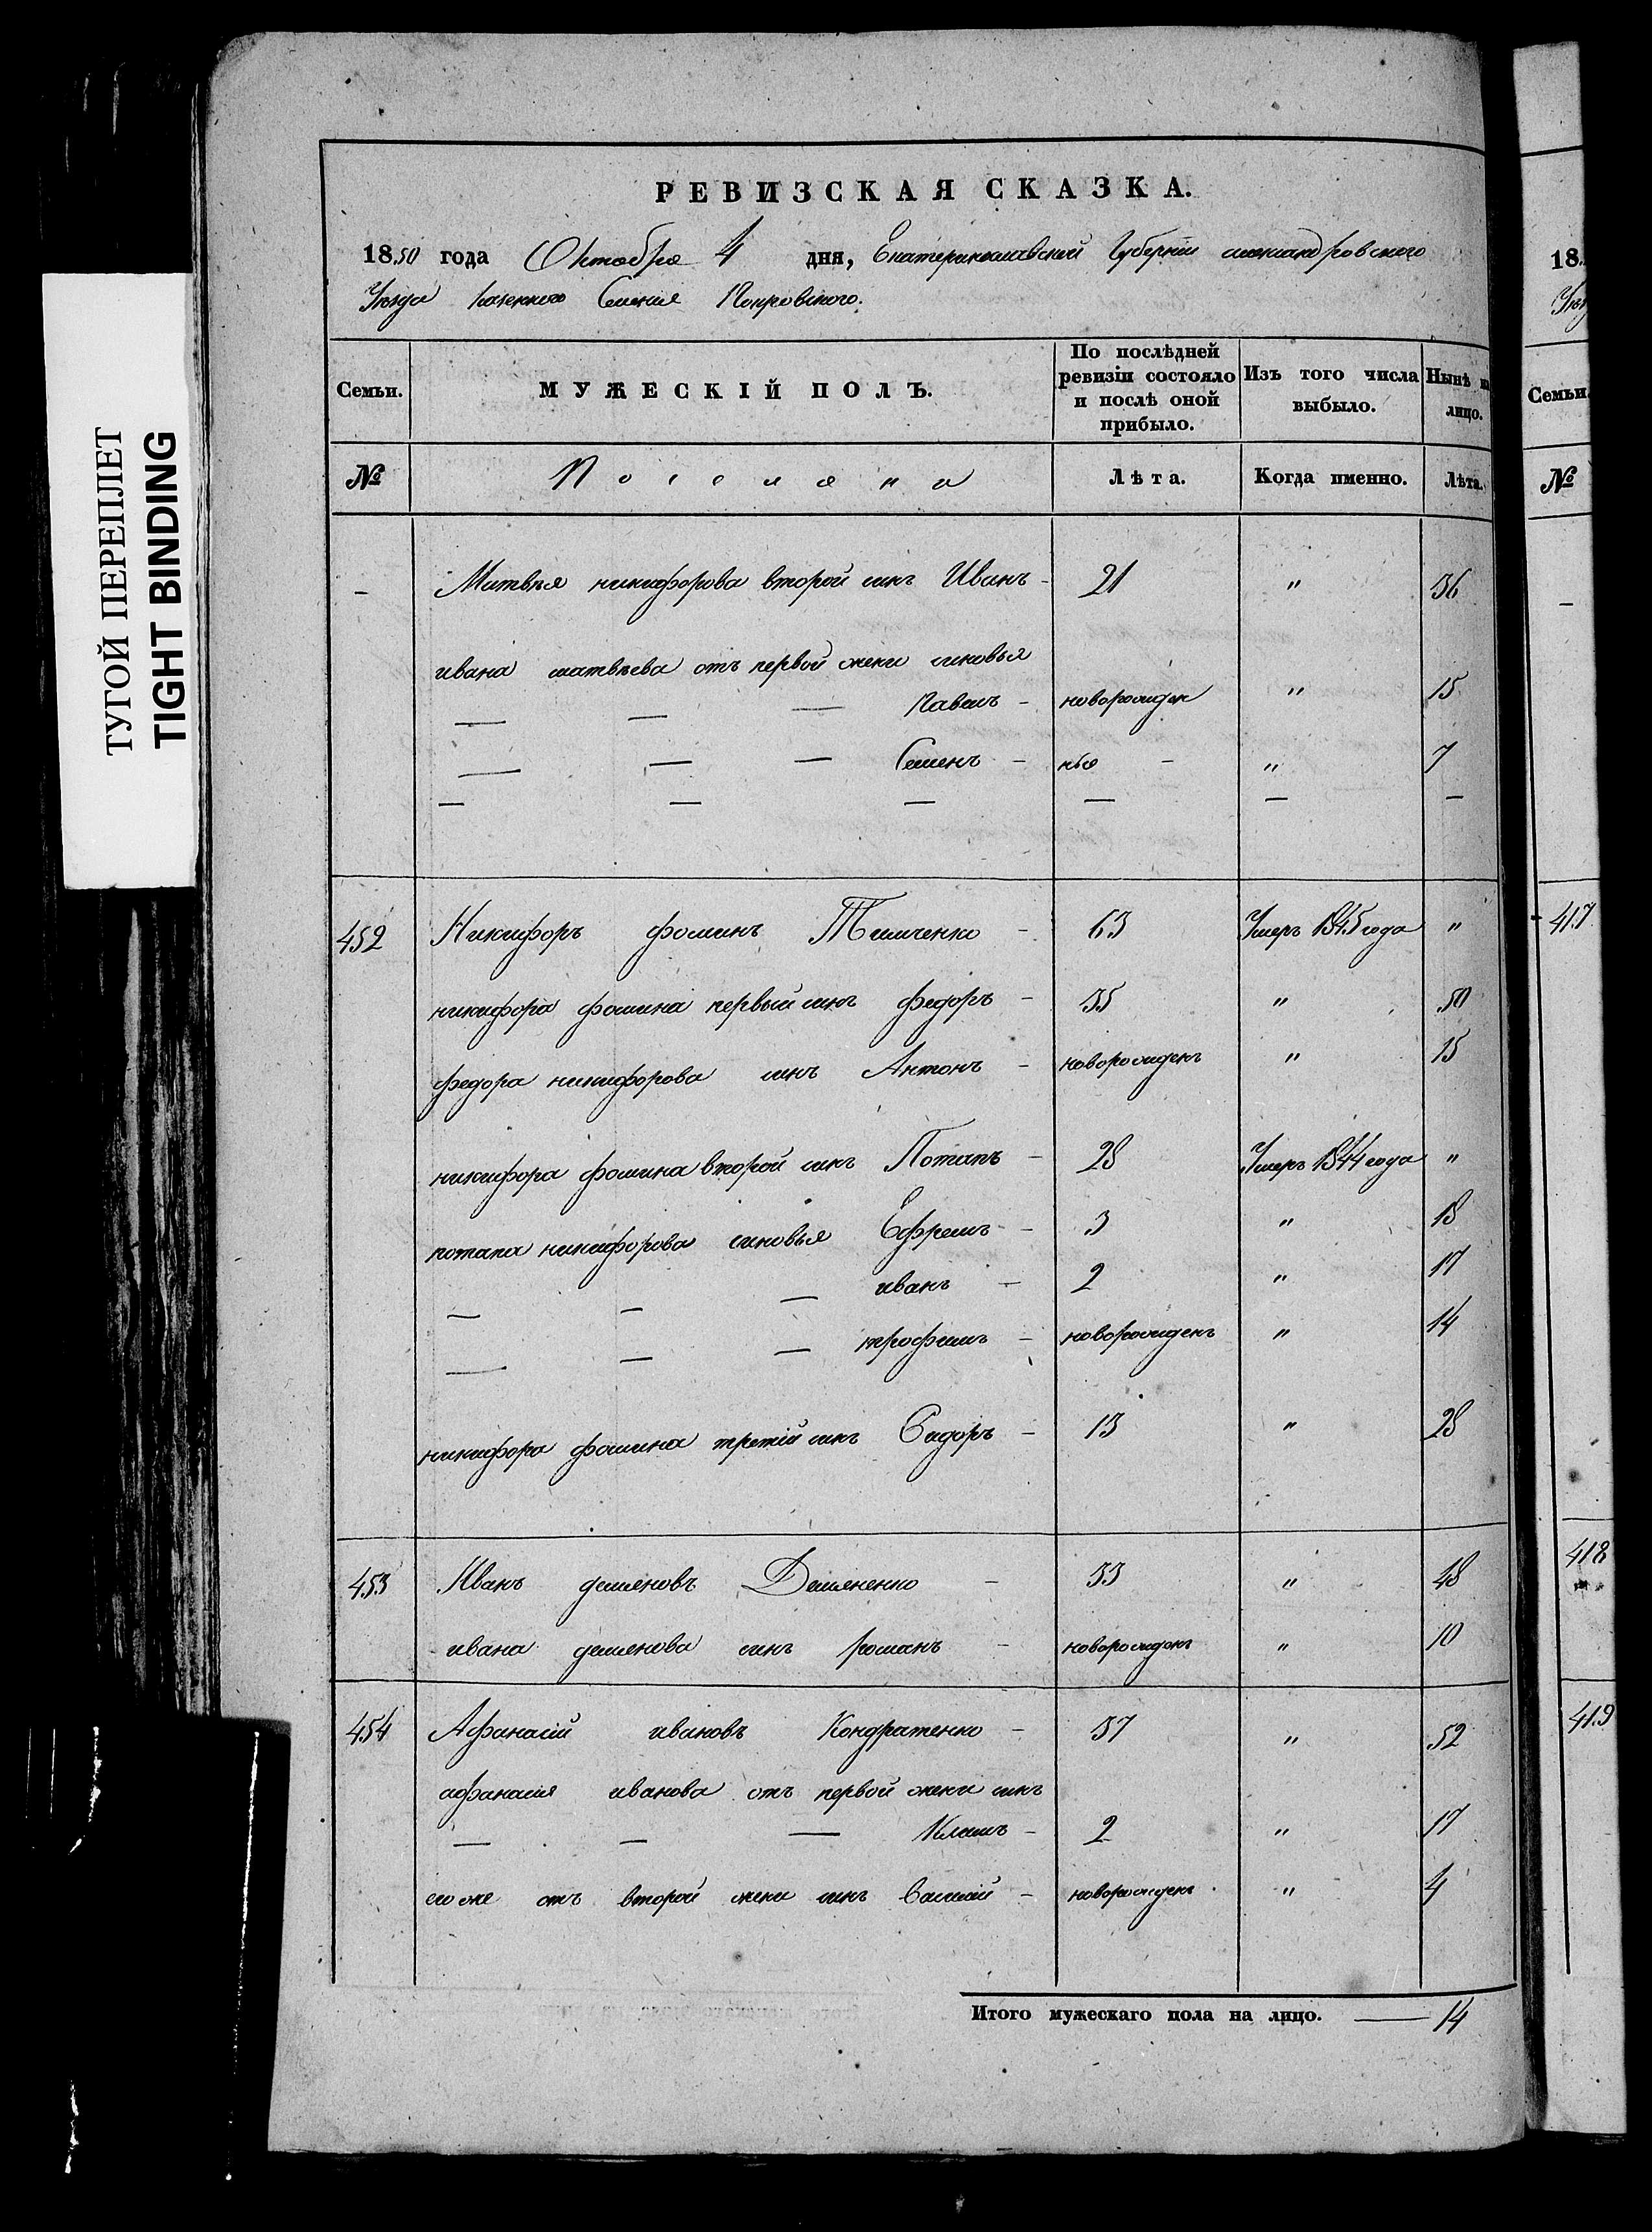 ТУГОЙ ПЕРЕПЛЕТ
TIGHT BINDING
РЕВИЗСКАЯ СКАЗКА.
1850 года Октября 4 дня, Екатеринославской Губерніи александровского
Уезда казенного Селения Покровского.
Семьи. МУЖЕСКІЙ ПОЛЪ. По послѣдней ревизіи состояло и послѣ оной прибыло. Изъ того числа выбыло. Нынѣ на лицо.
№ Поселяна Лѣта. Когда именно. Лѣта.
- Матвѣя никифорова второй синъ Иванъ - 21 " 36
ивана матвѣева отъ первой жени синовья
— — — Павелъ - новорожден " 15
— — — Семенъ - - " 7
— — — — — —
452 Никифоръ фоминъ Тимченко - 63 Умеръ 1845 года "
никифора фомина первый синъ федоръ - 35 " 50
федора никифорова синъ Антонъ - новорожденъ " 15
никифора фомина второй синъ Потапъ - 28 Умеръ 1844 года "
потапа никифорова синовья Ефремъ - 3 " 18
— — — иванъ - 2 " 17
— — — трофимъ - новорожденъ " 14
никифора фомина третій синъ Сидоръ - 13 " 28
453 Иванъ демяновъ Демяненко - 33 " 48
ивана демянова синъ романъ - новорожденъ " 10
454 Афанасій ивановъ Кондратенко - 37 " 52
афанасія иванова отъ первой жени синъ
— — — Климъ - 2 " 17
его же отъ второй жени синъ Василій - новорожденъ " 4
Итого мужескаго пола на лицо. — 14
18
Семьи
№
-
417
418
419